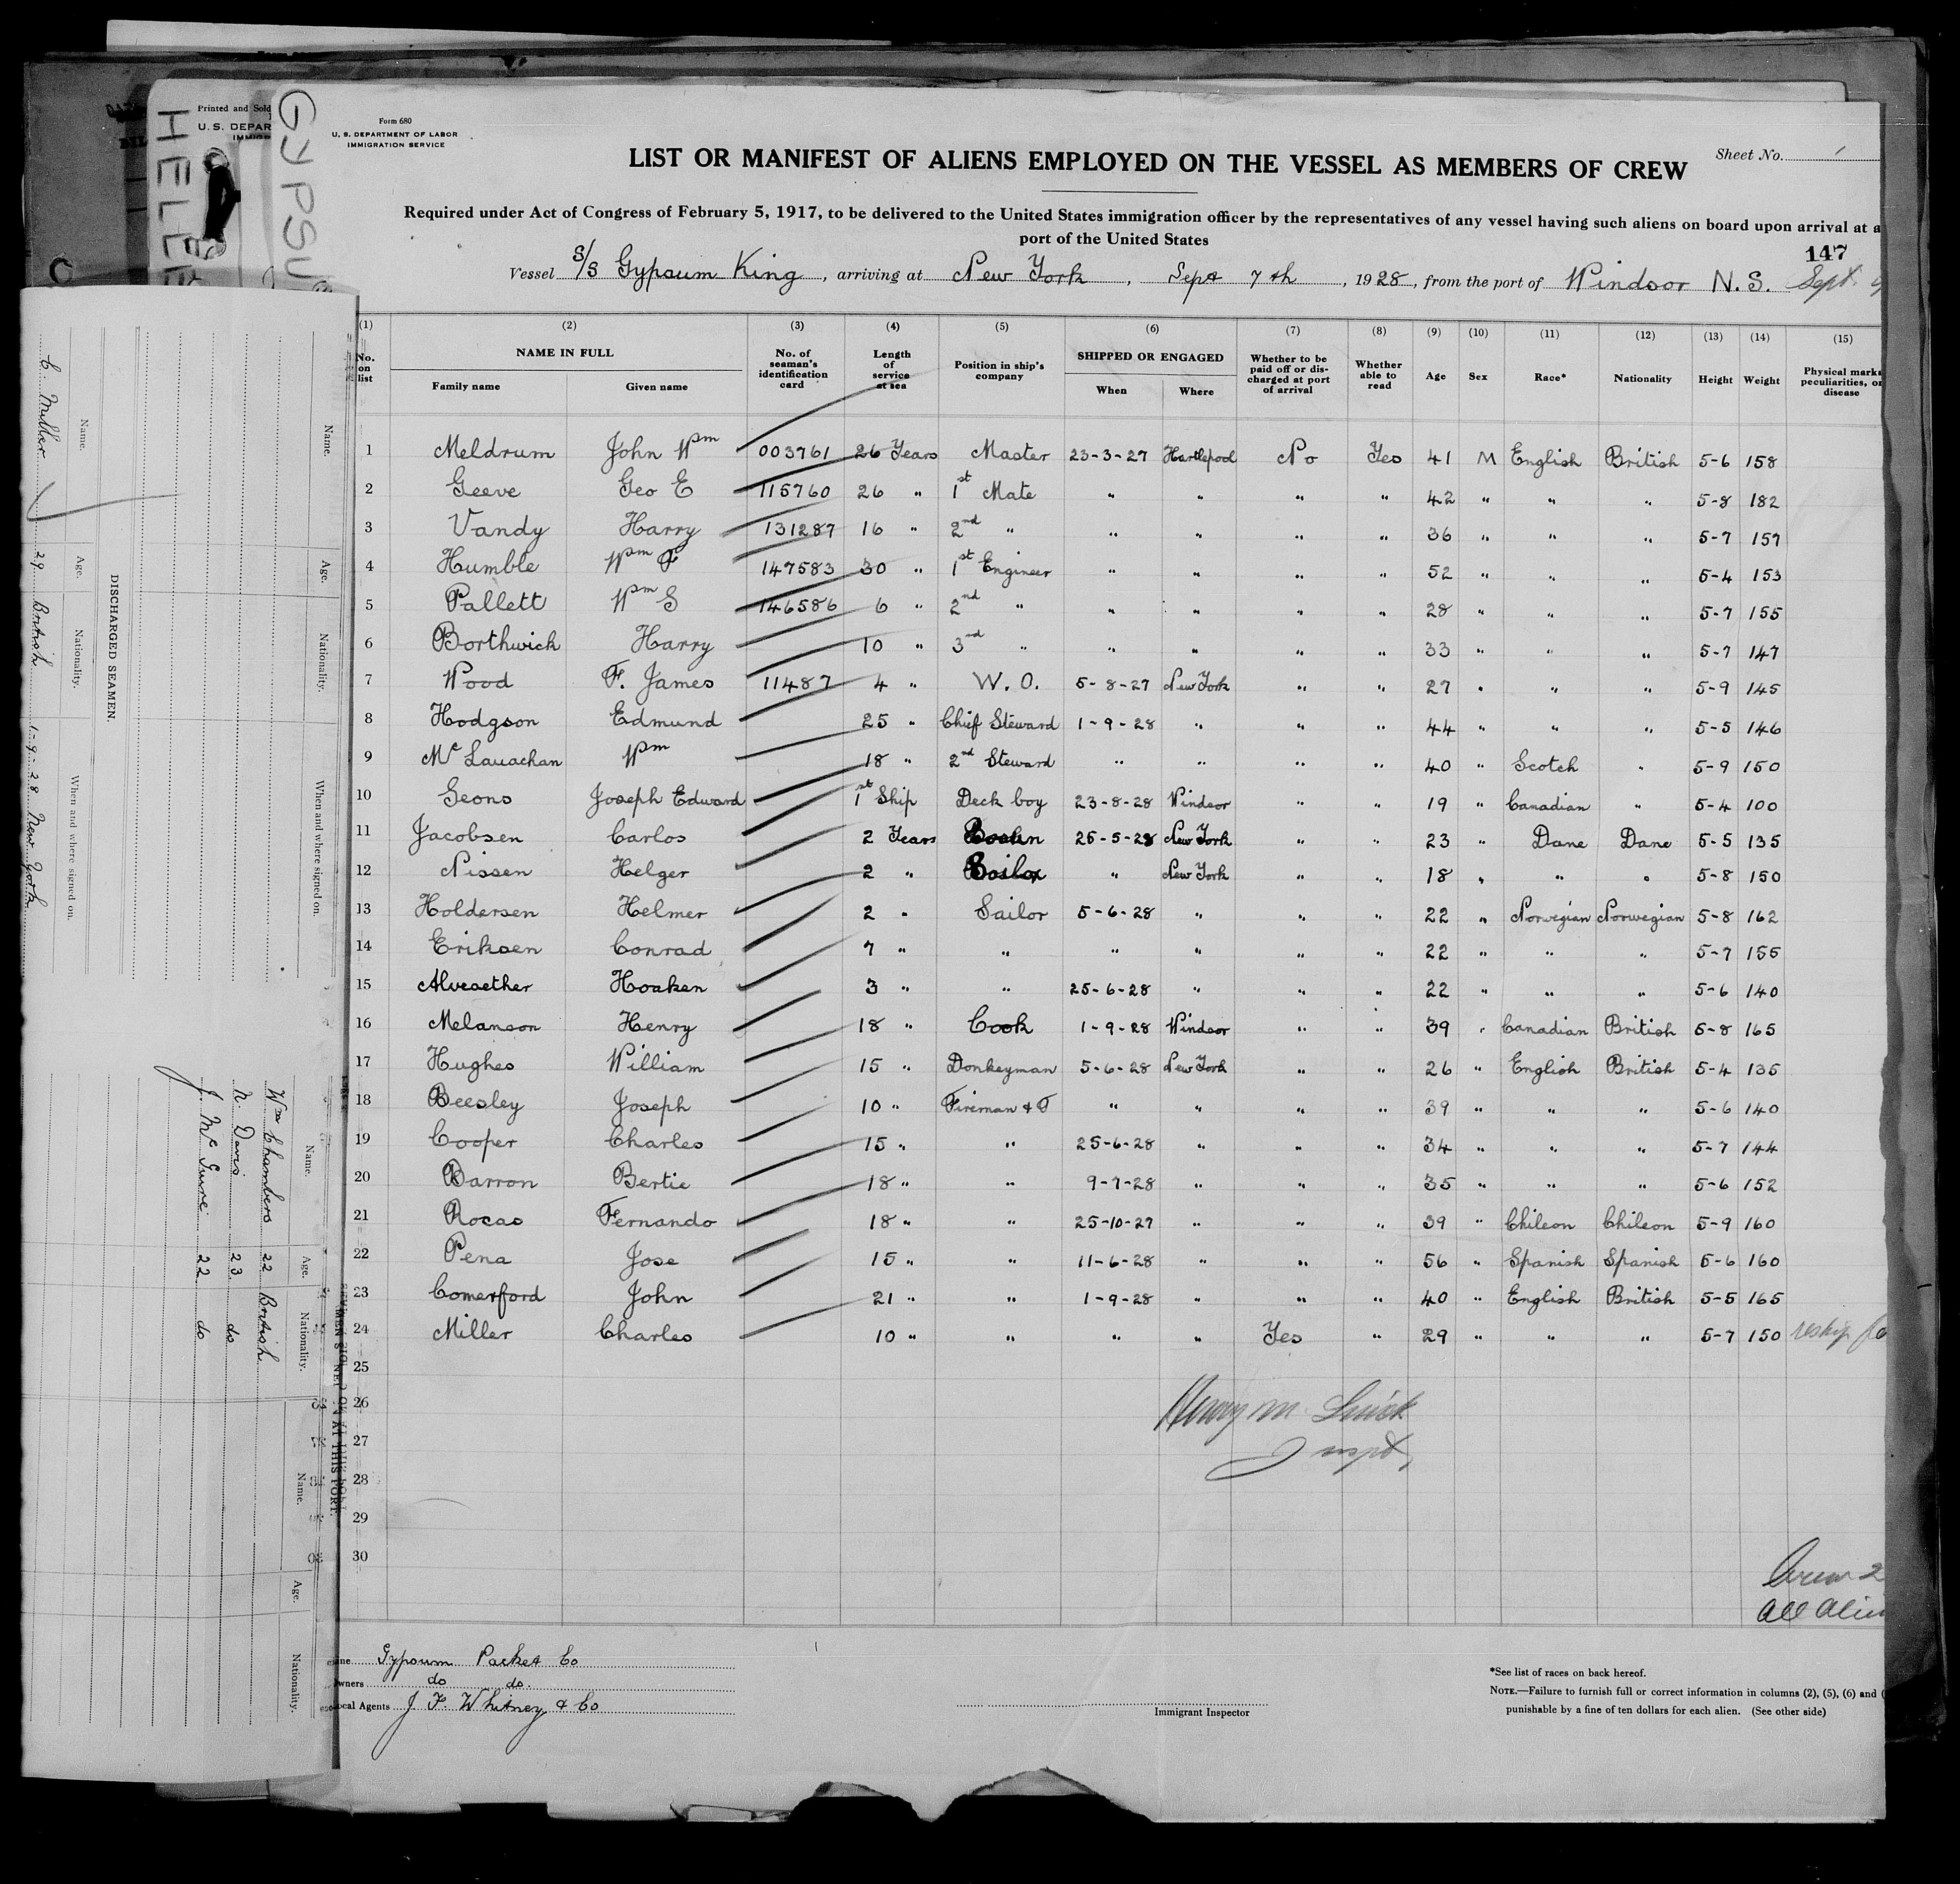 Printed and Sold
U. S. DEPAR
GYPSU
HELE
Form 680
U. S. DEPARTMENT OF LABOR
IMMIGRATION SERVICE
LIST OR MANIFEST OF ALIENS EMPLOYED ON THE VESSEL AS MEMBERS OF CREW
Sheet No. 1
Required under Act of Congress of February 5, 1917, to be delivered to the United States immigration officer by the representatives of any vessel having such aliens on board upon arrival at a
port of the United States
147
Vessel S/S Gypsum King, arriving at New York, Sept 7th, 1928, from the port of Windsor N. S. Sept
(1) (2) (3) (4) (5) (6) (7) (8) (9) (10) (11) (12) (13) (14) (15)
No. on list NAME IN FULL Family name Given name No. of seaman's identification card Length of service at sea Position in ship's company SHIPPED OR ENGAGED When Where Whether to be paid off or discharged at port of arrival Whether able to read Age Sex Race* Nationality Height Weight Physical marks, peculiarities, or disease
1 Meldrum John Wm 003761 26 Years Master 23-3-27 Hartlepool No Yes 41 M English British 5-6 158
2 Geeve Geo E 115760 26 " 1st Mate " " " " 42 " " " 5-8 182
3 Vandy Harry 131287 16 " 2nd " " " " " 36 " " " 5-7 157
4 Humble Wm F 147583 30 " 1st Engineer " " " " 52 " " " 5-4 153
5 Pallett Wm S 146586 6 " 2nd " " " " " 28 " " " 5-7 155
6 Borthwick Harry 10 " 3nd " " " " " 33 " " " 5-7 147
7 Wood F. James 11487 4 " W. O. 5-8-27 New York " " 27 " " " 5-9 145
8 Hodgson Edmund 25 " Chief Steward 1-9-28 " " " 44 " " " 5-5 146
9 Mc Lauachan Wm 18 " 2nd Steward " " " " 40 " Scotch " 5-9 150
10 Geons Joseph Edward 1st Ship Deck boy 23-8-28 Windsor " " 19 " Canadian " 5-4 100
11 Jacobsen Carlos 2 Years 26-5-28 New York " " 23 " Dane Dane 5-5 135
12 Nissen Helger 2 " " New York " " 18 " " " 5-8 150
13 Holdersen Helmer 2 " Sailor 5-6-28 " " " 22 " Norwegian Norwegian 5-8 162
14 Eriksen Conrad 7 " " " " " " 22 " " " 5-7 155
15 Alvsaether Hoaken 3 " " 25-6-28 " " " 22 " " " 5-6 140
16 Melanson Henry 18 " Cook 1-9-28 Windsor " " 39 " Canadian British 5-8 165
17 Hughes William 15 " Donkeyman 5-6-28 New York " " 26 " English British 5-4 135
18 Beesley Joseph 10 " Fireman & T " " " " 39 " " " 5-6 140
19 Cooper Charles 15 " " 25-6-28 " " " 34 " " " 5-7 144
20 Barron Bertie 18 " " 9-7-28 " " " 35 " " " 5-6 152
21 Rocas Fernando 18 " " 25-10-27 " " " 39 " Chileon Chileon 5-9 160
22 Pena Jose 15 " " 11-6-28 " " " 56 " Spanish Spanish 5-6 160
23 Comerford John 21 " " 1-9-28 " " " 40 " English British 5-5 165
24 Miller Charles 10 " " " " Yes " 29 " " " 5-7 150 reship
25
26
27
28
29
30
Inspt,
Crew 2
All Alien
Gypsum Packet Co
wners do do.
ocal Agents J. F. Whitney & Co
Immigrant Inspector
*See list of races on back hereof.
NOTE.—Failure to furnish full or correct information in columns (2), (5), (6) and (
punishable by a fine of ten dollars for each alien. (See other side)
Name. Age. Nationality. When and where signed on.
DISCHARGED SEAMEN.
Name. Age. Nationality. When and where signed on.
C. Miller 29 British 1-9-28 New York
Name. Age. Nationality. Name. Age. Nationality.
Wm Chambers 22 British
N. Davis 23 do
J. Mc Guire 22 do